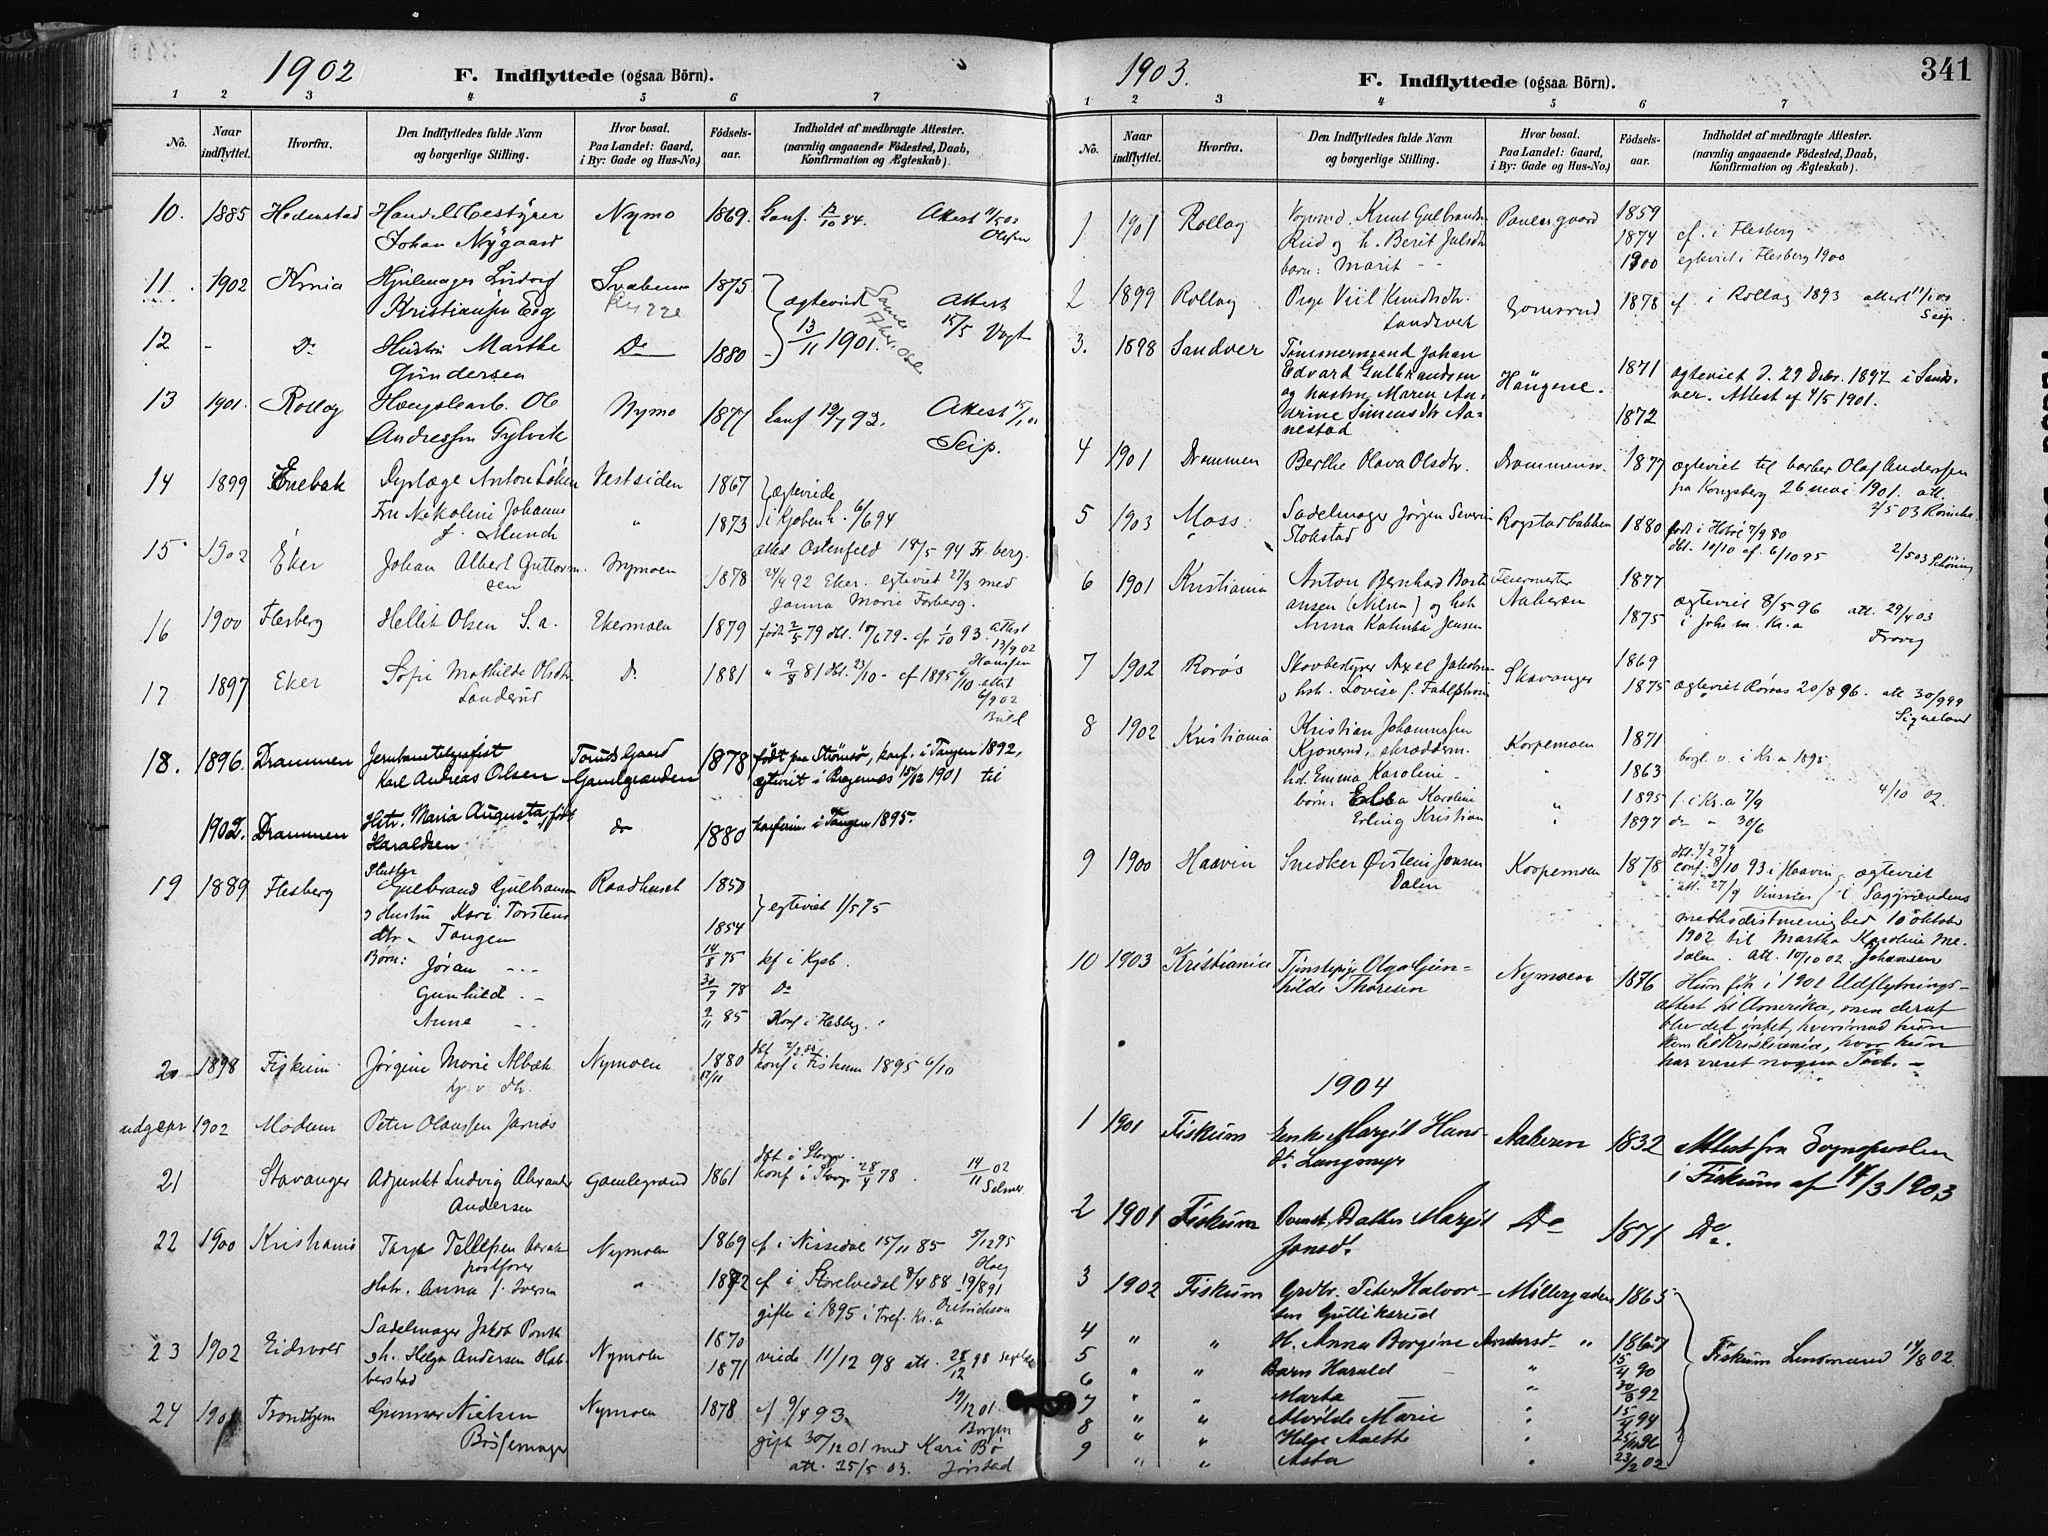 1902
F. Indflyttede (ogsaa Börn).
1 2 3 4 5 6 7
No. Naar indflyttet. Hvorfra. Den Indflyttedes fulde Navn og borgerlige Stilling. Hvor bosat. Paa Landet: Gaard, i By: Gade og Hus-No.) Födsels-aar. Indholdet af medbragte Attester. (navnlig angaaende Födested, Daab, Konfirmation og Ægteskab).
10. 1885 Hedenstad Handelsbestyrer Nymo 1869. Conf. 12/10 84. Attest
Johan Nygaard Olsen
11. 1902 Krnia Hjulmager Ludvig 1875
Kristiansen Eeg ægteviet Attest
13/11 1901. 15/5 Vogt
12 - Do Hustru Marthe Do 1880
Gundersen
13 1901. Rollag Ole Nymo 1877 Conf 93. Attest
Andresen Gylvik Seip.
14 1899 Enebak Anton Löken Vestsiden 1867 ægteviede
Fru Nikoline Johanne " 1873 i Kjöbenh. 6/6 94
f. Munch
15 1902 Eker Johan Albert Guttorm- Nymoen 1878 attest Ostenfeld 18/5 94 Fr.berg.
sen 92 Eker. egteviet 27/3 med
Janna Marie Forberg.
16 1900 Flesberg Hellik Olsen S. a. Ekermoen 1879 født 2/5 79 dbt. 15/6 79 - cf 1/10 93. attest 13/9 02
Hanssen
17 1897 Eker Sofie Mathilde Olsdtr Do 1881 " 9/8 81 dbt. 23/10 - cf 1895 6/10 attest
Landerud 6/9 02
18. 1896. Drammen Jernbanetelegrafist Torudsgaard 1878 født paa Strömsø, konf. i Tangen 1892,
Karl Andreas Olsen Gamlegranden ægteviet i Bragernes 15/12 1901 til
1902. Drammen Hstr. Maria Augusta, født do 1880 konfirm i Tangen 1895.
Haraldsen
19 1889 Flesberg Slutter
Gulbrand Gulbransen Raadhuset 1850
o Hustru Kari Torstens egteviet 1/5 75
dtr. Tangen 1854
Børn: Jøran - - - 14/8 75 kf i Kgsb.
Gunhild - - 30/7 78 Do
Anne - - 9/11 85 Konf i Flesberg.
20 1898 Fiskum Jørgine Marie Albæk Nymoen 1880 konf i Fiskum 1895 6/10
17/11
udgepr 1902 Modum Peter Olaussen Jarnæs
21 Stavanger Adjunkt Ludvig Alexander Gamlegrænd 1861 dbt i Stavgr. 14/11 02
Andersen konf i Stavgr 28/4 78. Selmer
22 1900 Kristiania Tarje Tellefsen Nymoen 1869 cf i Nissedal 15/11 85 5/12 95
postfører Hoeg
Hstr. Anna f. Iversen " 1872 cf i Storelvedal 8/4 88 19/8 91
gifte i 1895 i Tref. Kr.a Dietrichson
23 1902 Eidsvold Sadelmager Jakob 1870
o h. Helga Andersen Hal- Nymoen 1871 viede 11/12 98 att. 28/12 98
berstad
24 1901 Trondhjem Gunnar Nielsen Nymoen 1878 cf 9/4 93 19/12 01
Bössemager Borgen
gift 30/12 01 med Kari Bø
att. 25/5 03. Jørstad
1903.
F. Indflyttede (ogsaa Börn).
341
1 2 3 4 5 6 7
No. Naar indflyttet. Hvorfra. Den Indflyttedes fulde Navn og borgerlige Stilling. Hvor bosat. Paa Landet: Gaard, i By: Gade og Hus-No.) Födsels-aar. Indholdet af medbragte Attester. (navnlig angaaende Födested, Daab, Konfirmation og Ægteskab).
1 1901 Rollag Knut Gulbrandsen Poulsgaard 1859
Ruud og h. Berit Julsdtr 1874 cf. i Flesberg
barn: Marit - - 1900 egteviet i Flesberg 1900
2 1899 Rollag Pige Viil Knudsdtr. Gomsrud 1878 cf. i Rollag 1893 attest
Landsverk Seip.
3. 1898 Sandsver Tømmermand Johan
Edvard Gulbrandsen 1871 ægteviet d. 29 Decbr. 1897 i Sands-
og hustru Maren An- Haugene. ver. Attest af 4/5 1901.
drine Simensdtr Aa- 1872
nestad
4 1901 Drammen Berthe Olava Olsdtr. Drammensv. 1877 ægteviet til barber Olaf Anderssen
fra Kongsberg 26 mai 1901. att.
2/5 03
5 1903 Moss Sadelmager Jørgen Severin Rogstadbakken 1880 født i Hobøl 7/9 80
Stokstad dbt. 10/10 cf. 6/10 95 2/5 03 Schøning
6 1901 Kristiania Anton Bernhard Bast- Feiermester 1877
ansen (Nilsen) og hst. Aakeren ægteviet 8/5 96 att. 29/4 03
Anna Katinka Jensen 1875 i Johs m. Kr.a
7 1902 Rorøs Skovbestyrer Axel Jakobsen Skavanger 1869
o hst. Lovise f. Fahlstrøm 1875 ægteviet Røros 20/8 96. att 30/9 99
Signeland
8 1902 Kristiania Kristian Johannessen
Kjonerud, skrædderm. Korpemoen 1871
hst. Emma Karoline - 1863 borgl. v. i Kr.a 1895
børn: Elsa Karoline " 1895 f. i Kr.a 7/9 4/10 02.
Erling Kristian " 1897 do " 30/6
9 1900 Haavin Snedker Øistein Jonsen Korpemoen 1878 dbt. 2/2 79
Dalen conf. 8/10 93 i Haavin, ægteviet
att. 27/9 Vinsnes i Saggrændens
methodistmenighed 10 oktober
1902 til Martha Karoline Me-
dalen. att. 10/10 02. Johansen
10 1903 Kristiania Tjenstepige Olga Gun- Nymoen 1876 Hun fik i 1902 Udflytnings-
hilde Thoresen attest til Amerika, men deraf
blev det intet, hvorimod hun
kom til Kristiania, hvor hun
har været nogen Tid. -
1904
1 1901 Fiskum Enke Margit Hans- Aakeren 1832 Attest fra Sognepresten
dt. Langmyr i Fiskum af 14/3 1903
2 1901 Fiskum Datter Margit Do 1871 Do.
Jonsdt.
3 1902 Fiskum Grdbr. Peter Halvor- Möllergaden 1865
sen Gullikserud
4 " " H. Anna Borgine Andersdt. " 1867 Fiskum Lensmand 14/8 02.
5 " " Barn Harald - " 15/4 90
6 " " Marta - " 30/8 92
7 " " Alvilde Marie " 15/4 94
8 " " Helga Anette " 96
9 " " Asta " 23/2 02